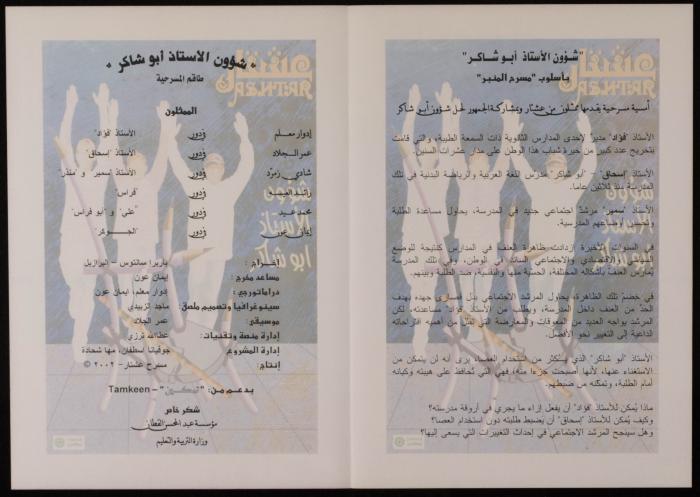 "شؤون الأستاذ أبو شاكر"
بأسلوب "مسرح المنبر"
أمسية مسرحية يقدمها ممثلون من عشتار ويشاركه الجمهور لحل شؤون أبو شاكر
الأستاذ "فؤاد" مدير لإحدى المدارس الثانوية ذات السمعة الطيبة، والتي قامت
بتخريج عدد كبير من خيرة شباب هذا الوطن على مدار عشرات السنين.
الأستاذ "إسحاق" – "أبو شاكر" مدرّس اللغة العربية والرياضة البدنية في تلك
المدرسة منذ ثلاثين عاماً.
الأستاذ "سمير" مرشد اجتماعي جديد في المدرسة، يحاول مساعدة الطلبة
وتحسين أوضاعهم المدرسية.
في السنوات الأخيرة ازدادت ظاهرة العنف في المدارس كنتيجة للوضع
السياسي والاقتصادي والاجتماعي السائد في الوطن، وفي تلك المدرسة
يُمارس العنف بأشكاله المختلفة، الحسية منها والنفسية، ضد الطلبة وبينهم.
في خضمّ تلك الظاهرة، يحاول المرشد الاجتماعي بذل قصارى جهده بهدف
الحدّ من العنف داخل المدرسة، ويطلب من الأستاذ "فؤاد" مساعدته، لكن
المرشد يواجه العديد من المعوقات والمعارضة التي تقلل من أهمية اقتراحاته
الداعية إلى التغيير نحو الأفضل.
الأستاذ "أبو شاكر" الذي يستكثر من استخدام العصا، يرى أنه لن يتمكن من
الاستغناء عنها، لأنها أصبحت جزءاً منه، فهي التي تحافظ على هيبته وكيانه
أمام الطلبة، وتمكنه من ضبطهم.
ماذا يُمكن للأستاذ "فؤاد" أن يفعل إزاء ما يجري في أروقة مدرسته؟
وكيف يُمكن للأستاذ "إسحاق" أن يضبط طلبته دون استخدام العصا؟
وهل سينجح المرشد الاجتماعي في إحداث التغييرات التي يسعى إليها؟
عشتار
ASHTAR
شؤون
الأستاذ
أبو شاكر
"شؤون الأستاذ أبو شاكر"
طاقم المسرحية
الممثلون
إدوار معلم في دور الأستاذ "فؤاد"
عمر الجلاد في دور الأستاذ "إسحاق"
شادي زمرّد في دور الأستاذ "سمير" و "منذر"
رائد العيسة في دور "فراس"
محمد عيد في دور "علي" و "أبو فراس"
إيمان عون في دور "الجوكر"
إخراج: باربرا سانتوس – البرازيل
مساعد مخرج: إيمان عون
دراماتورجي: إدوار معلم، إيمان عون
سينوغرافيا وتصميم ملصق: ماجد الزبيدي
موسيقى: عمر الجلاد
إدارة منصة وتقنيات: عطاالله ترزي
إدارة المشروع: جوفيانا اسطفان، مها شحادة
إنتاج: مسرح عشتار – ٢٠٠٢ ©
بدعم من: "تمكين" – Tamkeen
شكر خاص
مؤسسة عبد المحسن القطان
وزارة التربية والتعليم
ASHTAR